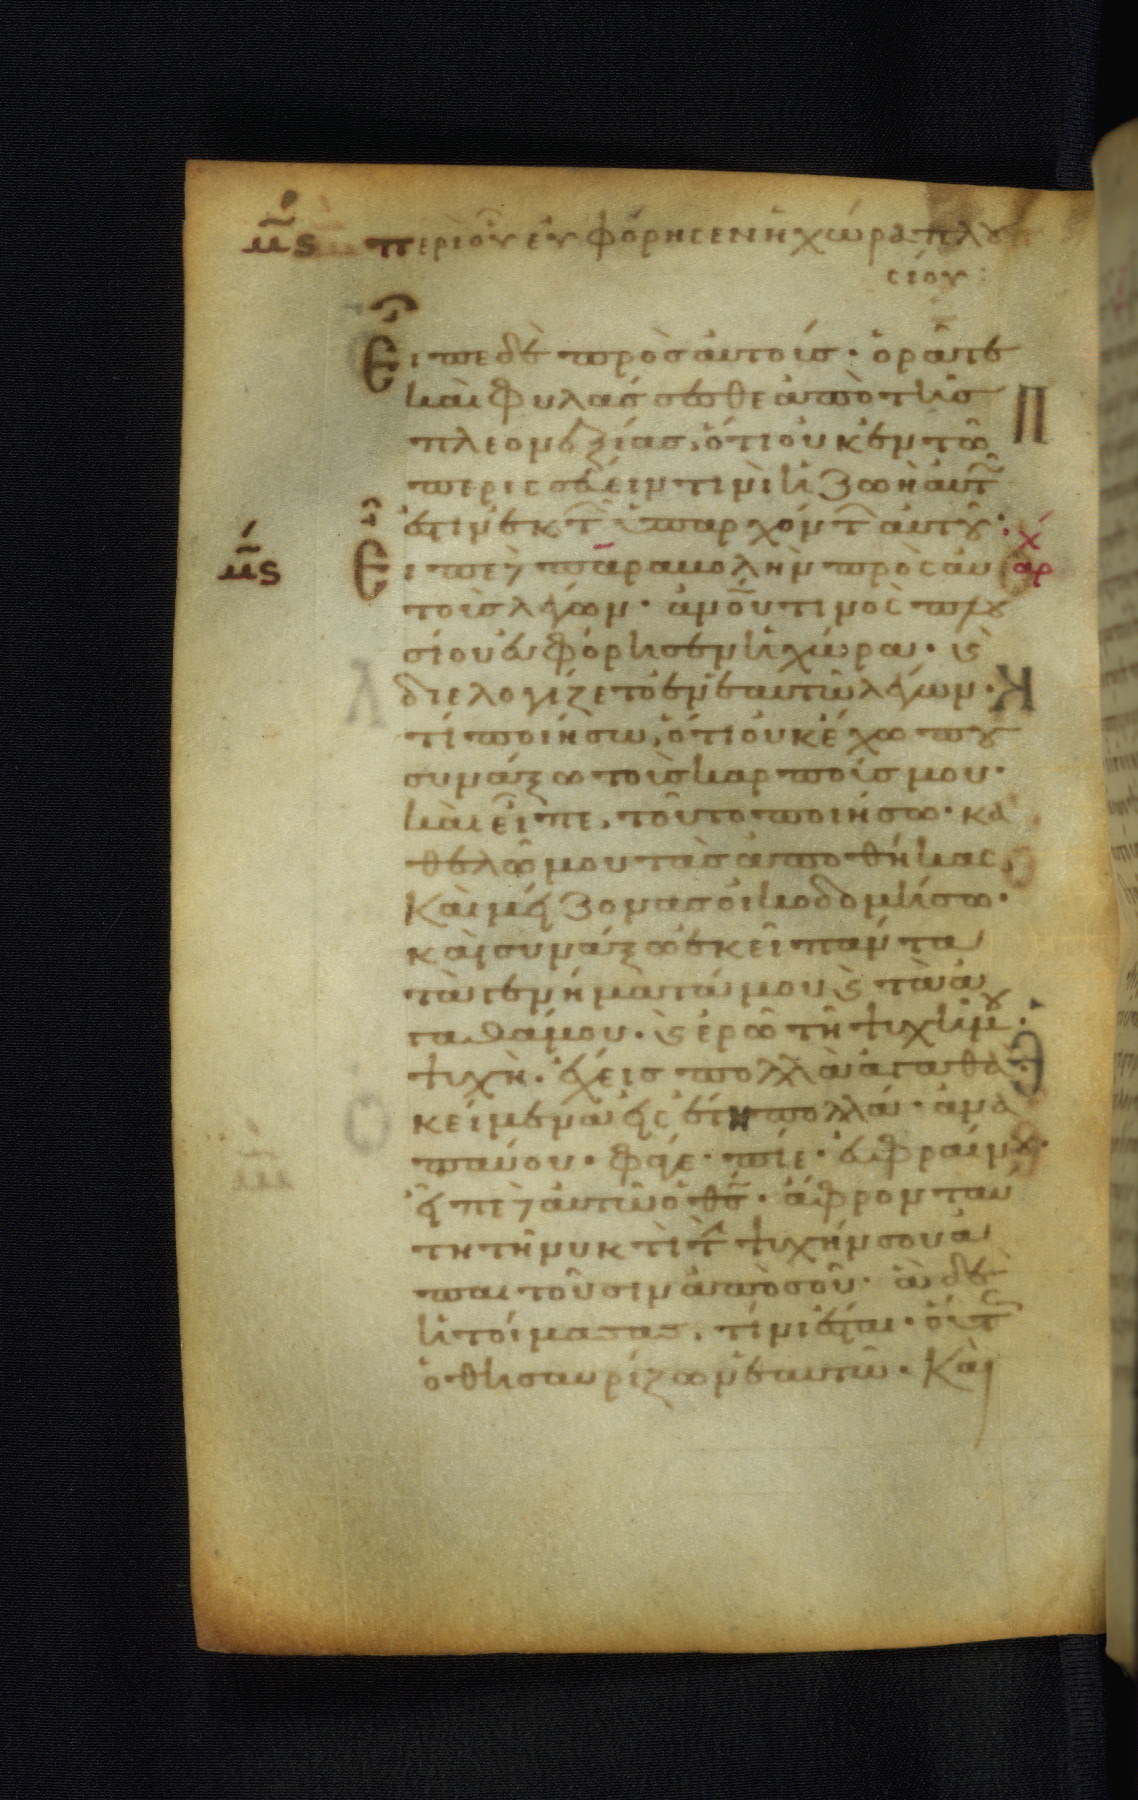 μς περὶ οὗ εὐφόρησεν ἡ χώρα πλου
σίου:
Εἶπε δὲ πρὸς αὐτούς· ὁρᾶτε
καὶ φυλάσσεσθε ἀπὸ τῆς
πλεονεξίας, ὅτι οὐκ ἐν τῶ
περισσεύειν τινὶ ἡ ζωὴ αὐτ
ἐστιν ἐκ τ ὑπαρχόντ αὐτοῦ·
μς Εἶπε παραβολὴν πρὸς αὐ αρχ
τοὺς λέγων· ἀνου τινος πλου
σίου εὐφόρησεν ἡ χώρα· ϗ
διελογίζετο ἐν ἑαυτῶ λέγων·
τί ποιήσω, ὅτι οὐκ ἔχω ποῦ
συνάξω τοὺς καρπούς μου·
καὶ εἶπε, τοῦτο ποιήσω· κα
θελῶ μου τὰς ἀποθήκας,
καὶ μείζονας οἰκοδομήσω·
καὶ συνάξω ἐκεῖ πάντα
τὰ γενήματά μου ϗ τὰ ἀ
γαθά μου· ϗ ἐρῶ τῆ ψυχῆ μου·
ψυχή· ἔχεις πολλὰ ἀγαθὰ
κείμενα εἰς ἔτη πολλά· ἀνα
παύου· φάγε· πίε· εὐφραίνου·
εἶπε αὐτῶ ὁ θς· ἄφρον ταύ
τη τῆ νυκτὶ τ ψυχήν σου ἀ
παιτοῦσιν ἀπὸ σοῦ· ἃ δὲ
ἡτοίμασας, τίνι ἔσται· οὕτ
ὁ θησαυρίζων ἑαυτῶ· καὶ